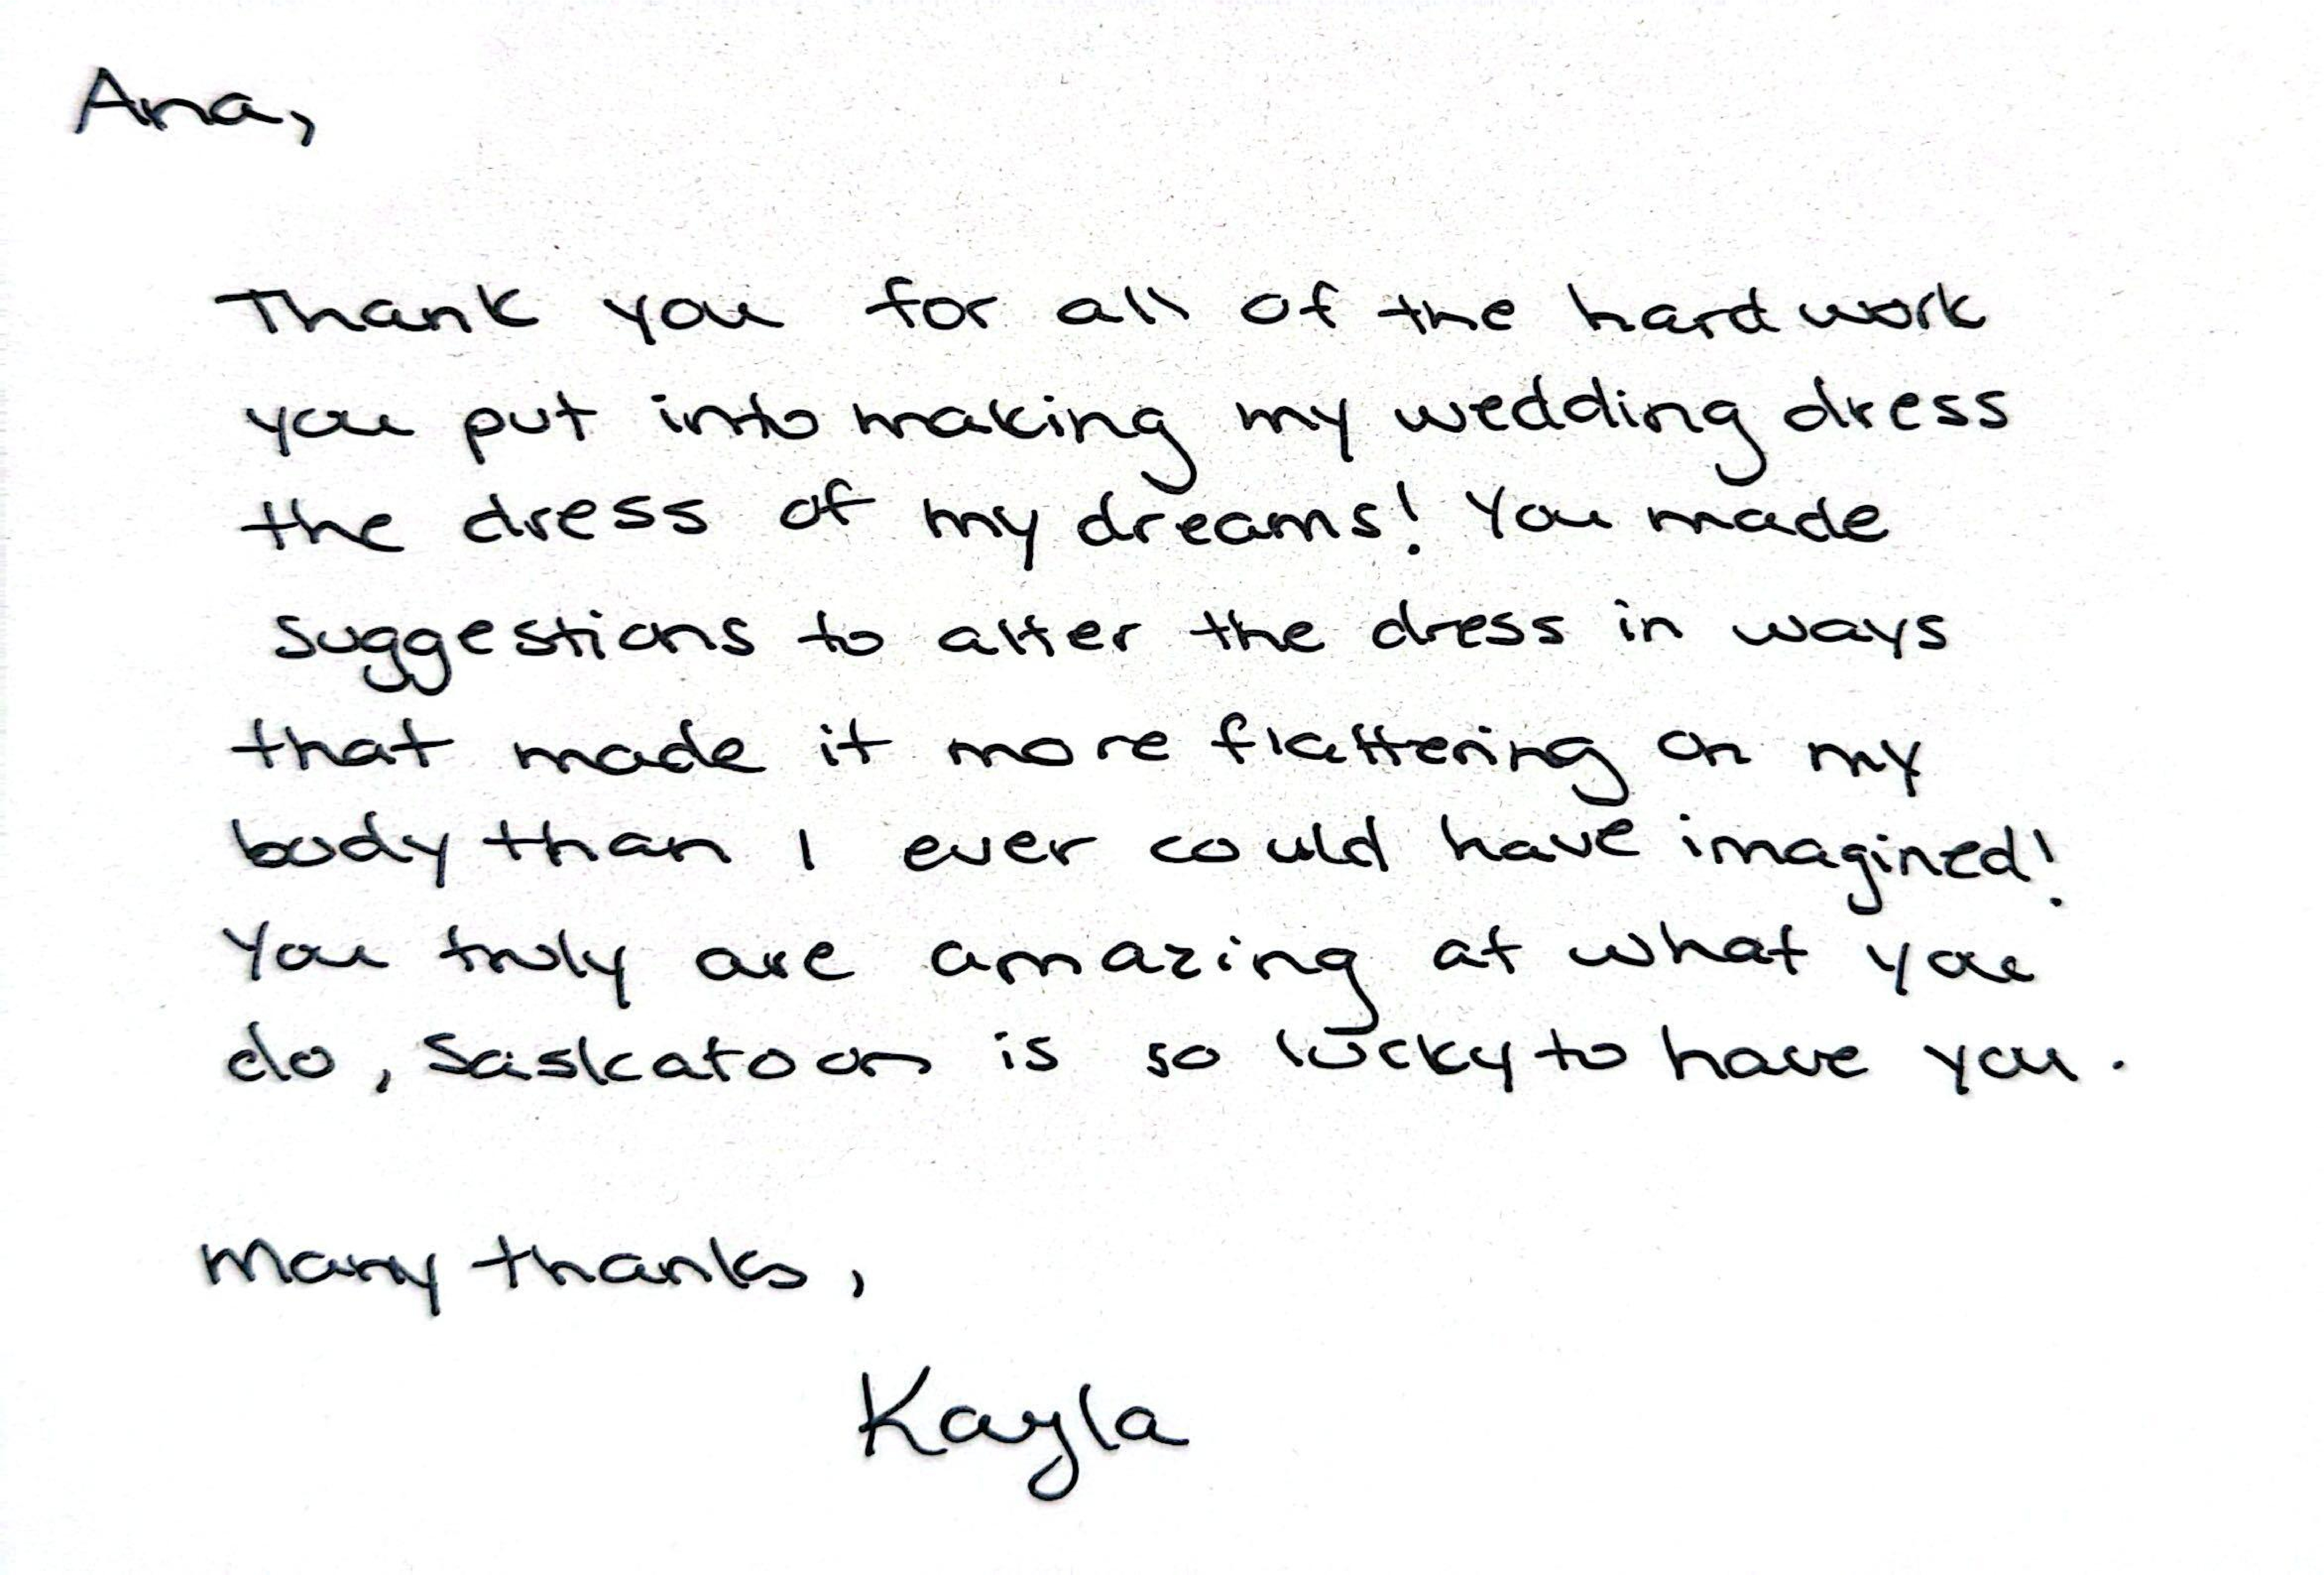 Ana,
Thank you for all of the hard work
you put into making my wedding dress
the dress of my dreams! You made
suggestions to alter the dress in ways
that made it more flattering on my
body than I ever could have imagined!
You truly are amazing at what you
do, Saskatoon is so lucky to have you.
Many thanks,
Kayla